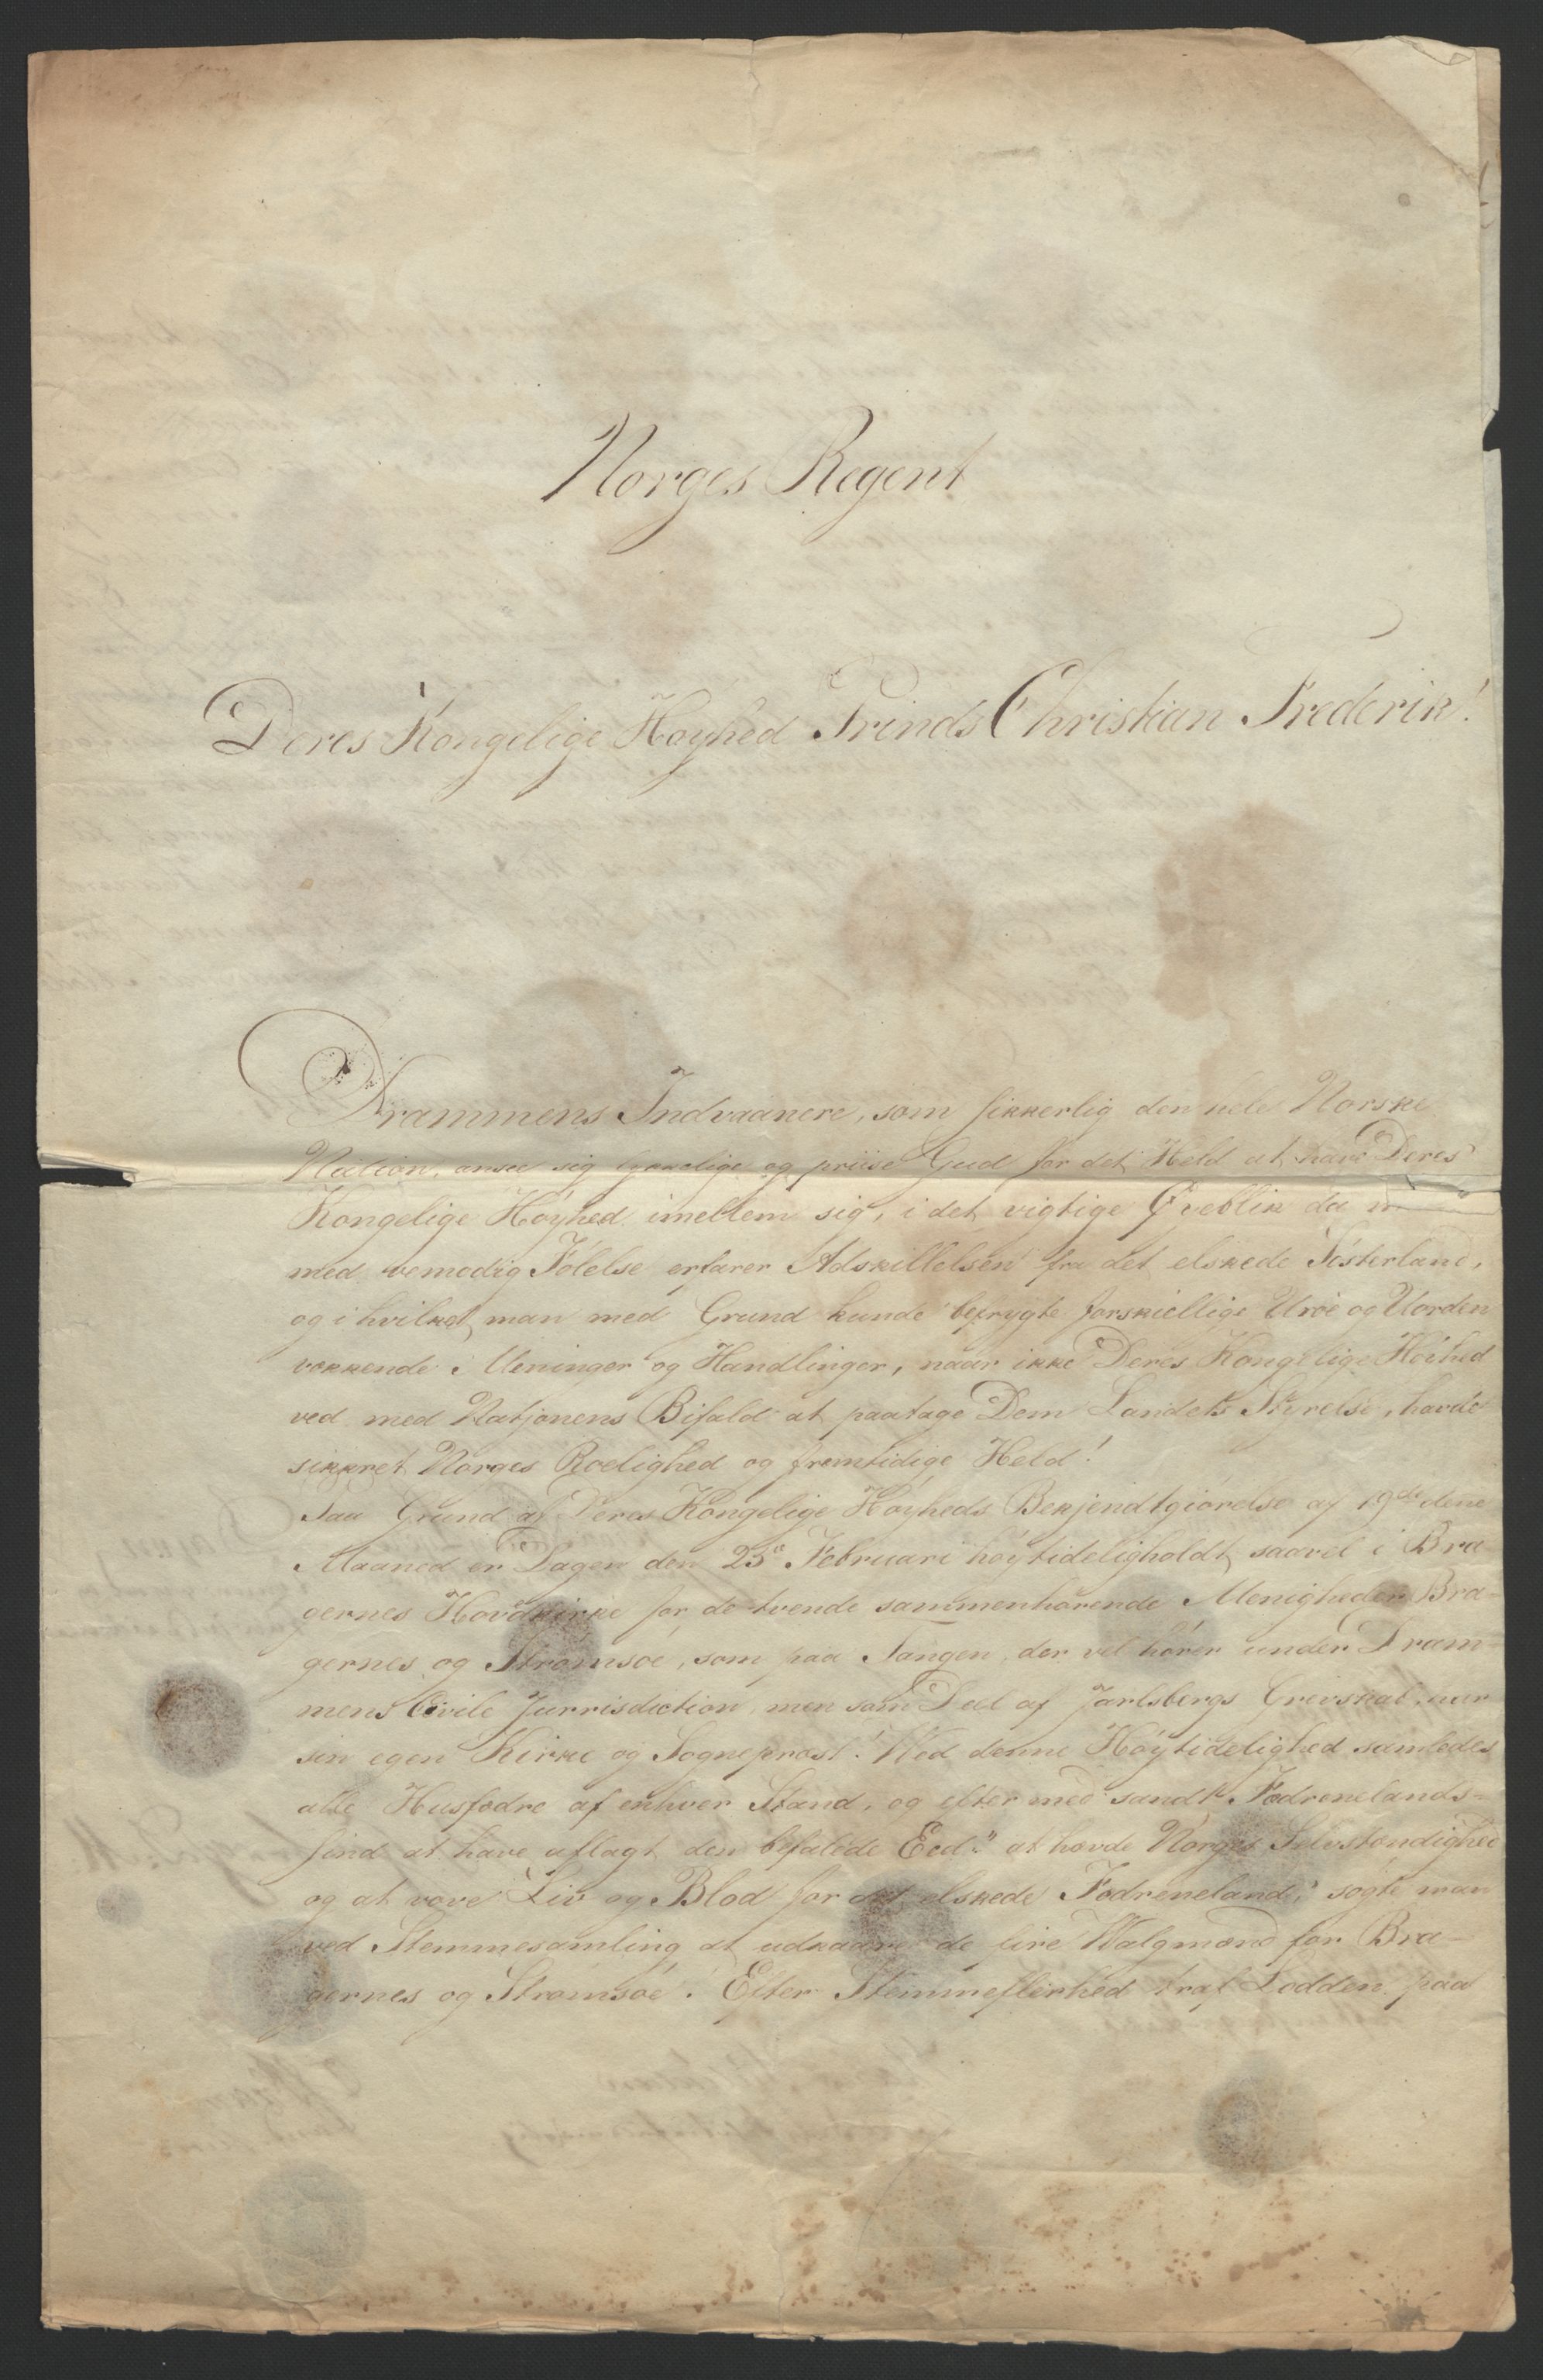 Norges Regent
Deres Kongelige Høyhed Prinds Christian Frederik!
Drammens Indvaanere, som sikkerlig den hele Norske
Nation, ansee sig lykkelige og priise Gud for det Held at have Deres
Kongelige Høyhed imellem sig, i det vigtige Øyeblik da
med vemodig Følelse erfarer Adskillelsen fra det elskede Søsterland,
og i hvilket man med Grund kunde befrygte forskiellige Uroe og Uorden
vækkende Meninger og Handlinger, naar ikke Deres Kongelige Høihed
ved med Natjonens Bifald at paatage Dem Landets Styrelse, havde
sikkret Norges Roelighed og fremtidige Held!
Paa Grund af Deres Kongelige Høyheds Bekjendtgiørelse af 19de dene
Maaned er Dagen den 25e Februari høytideligholdt saavel i Bra-
gernes Hovedkirke for de tvende sammenhørende Menigheder Bra-
gernes og Strømsøe, som paa Tangen, der vel hører under Dram-
mens Civile Jurrisdiction, men som Deel af Jarlsbergs Grevskab, har
sin egen Kirke og Sognepræst. Ved denne Høytidelighed samledes
alle Husfædre af enhver Stand, og efter med sandt Fædrenelands-
sind at have aflagt den befalede Eed: "at hævde Norges Selvstændighed
og at vove Liv og Blod for det elskede Fædreneland," søgte man
ved Stemmesamling at udkaare de fire Valgmænd for Bra-
gernes og Strømsøe. Efter Stemmeflerhed traf Lodden paa